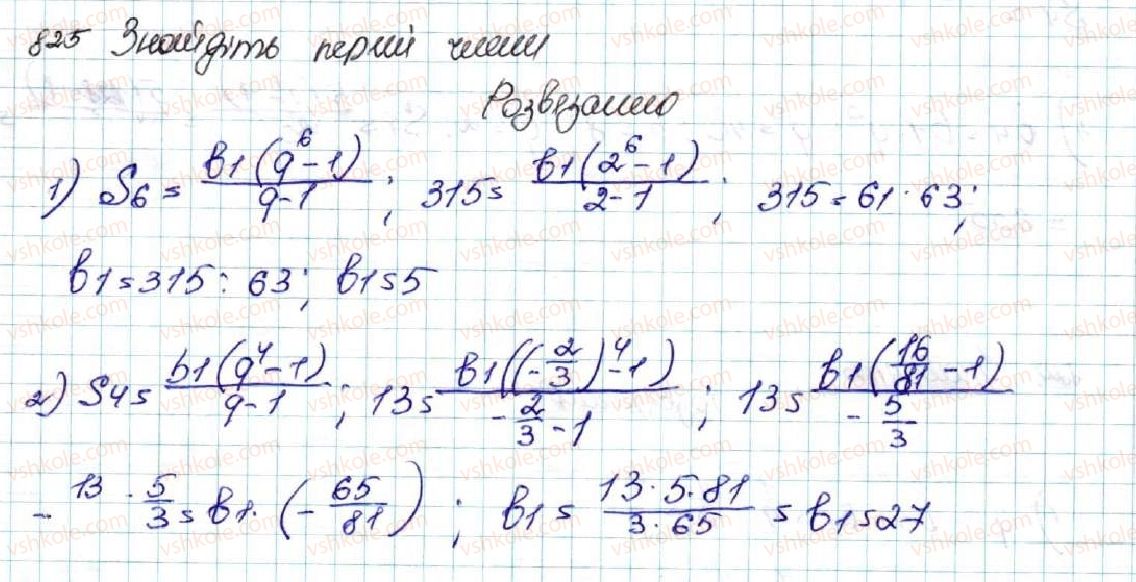 825 Знайдіть перший члени
Розвязанню
1) S6 = b1(q^6-1)/(q-1); 315 = b1(2^6-1)/(2-1); 315 = b1·63;
b1 = 315 : 63; b1 = 5
2) S4 = b1(q^4-1)/(q-1); 13 = b1((-2/3)^4-1)/(-2/3-1); 13 = b1(16/81-1)/(-5/3)
-13·5/3 = b1·(-65/81); b1 = (13·5·81)/(3·65) = b1 = 27